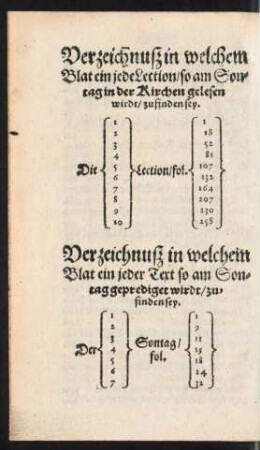 Verzeichnuß in welchem
Blat ein jede Lection/so am Son-
tag in der Kirchen gelesen
wirdt/zufinden sey.
1 1
2 18
3 52
4 81
Die 5 Lection/fol. 107
6 132
7 164
8 207
9 230
10 258
Verzeichnuß in welchem
Blat ein jeder Text so am Son-
tag geprediget wirdt/zu-
finden sey.
1 1
2 9
3 11
Der 4 Sontag/ 15
5 fol. 18
6 24
7 32